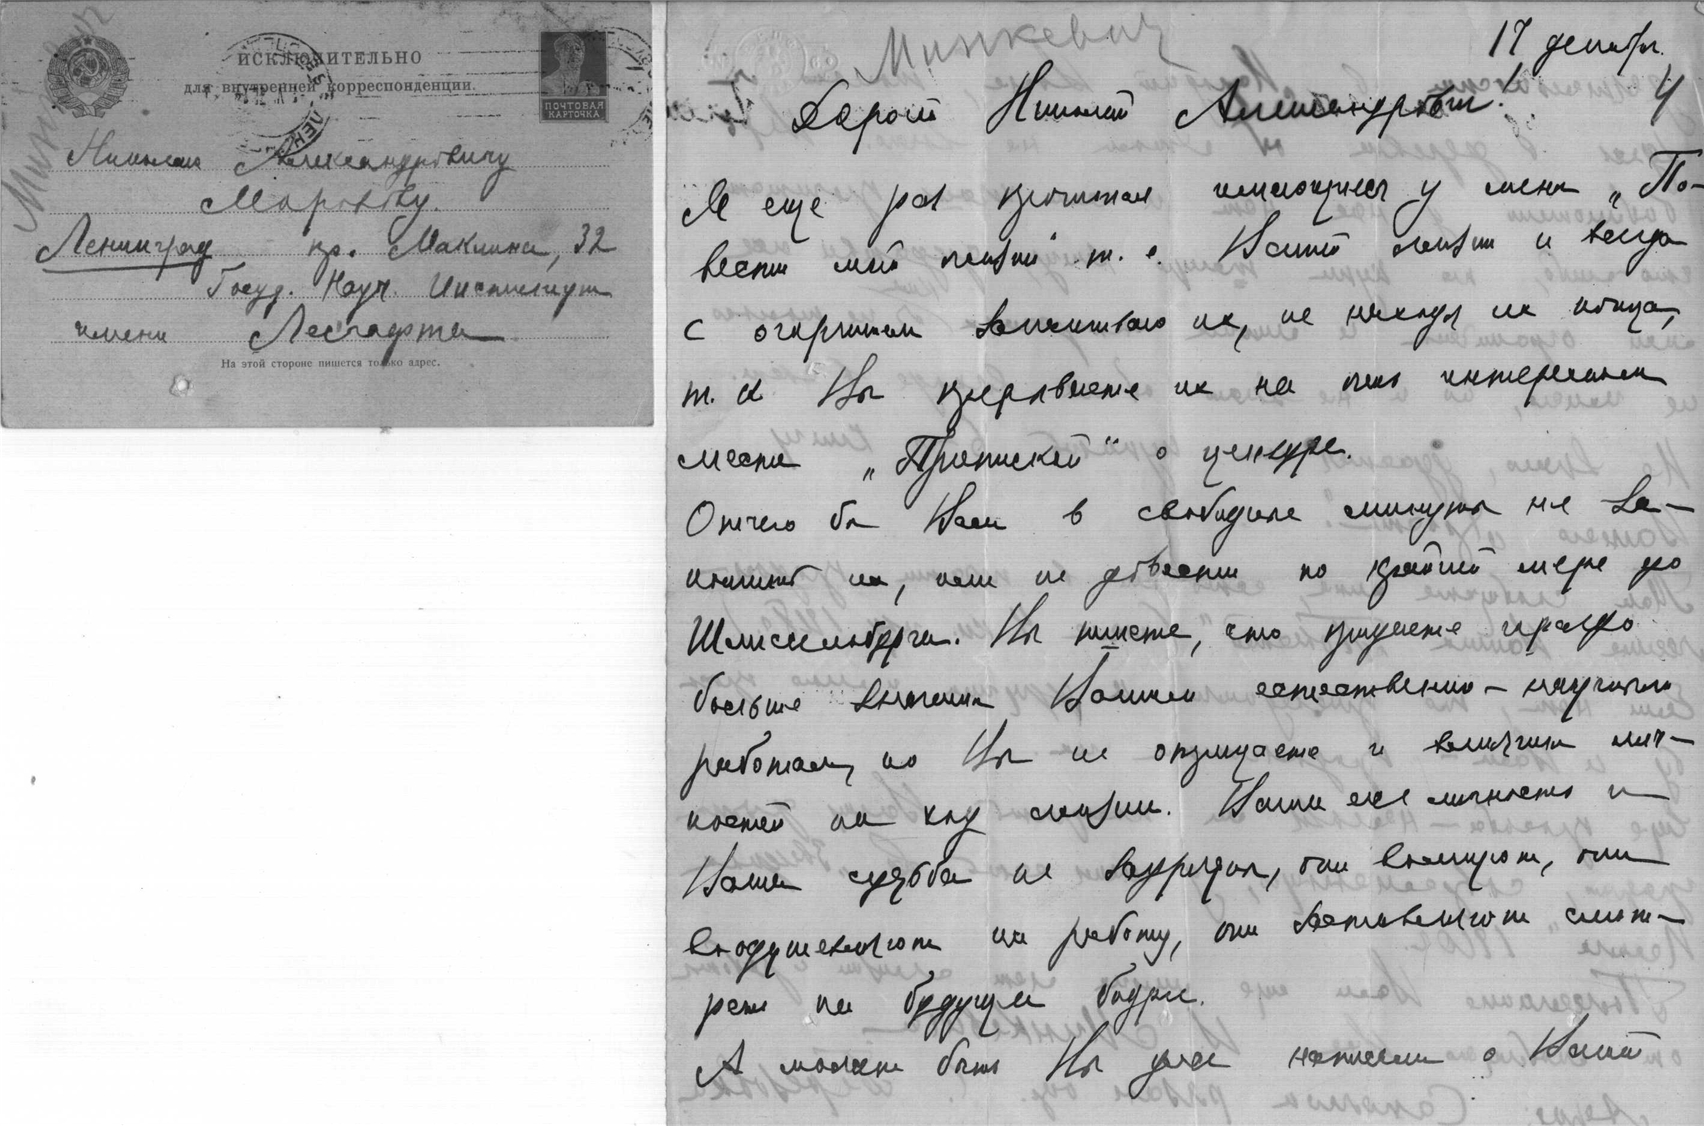 Минкевич
ИСКЛЮЧИТЕЛЬНО
для внутренней корреспонденции.
ПОЧТОВАЯ
КАРТОЧКА
Николаю Александровичу
Морозову.
Ленинград пр. Маклина, 32
Госуд. Науч. Институт
имени Лесгафта
На этой стороне пишется только адрес.
Минкевич
17 декабря
4
Дорогой Николай Александрович!
Я еще раз прочитал имеющуюся у меня „По-
вести моей жизни" т. е. Вашей жизни и всегда
с огорчением заканчиваю их, не находя их конца,
т. к Вы прерываете их на самом интересном
месте „Припиской" о цензуре.
Отчего бы Вам в свободные минуты не за-
кончить их, или не довести по крайней мере до
Шлиссельбурга. Вы пишете, что придаете гораздо
больше значения Вашим естественно-научным
работам, но Вы не отрицаете и влияния лич-
ностей на ход жизни. Ваша же личность и
Ваша судьба не заурядны, они волнуют, они
воодушевляют на работу, они заставляют смот-
реть на будущее бодрее.
А может быть Вы уже написали о Вашей